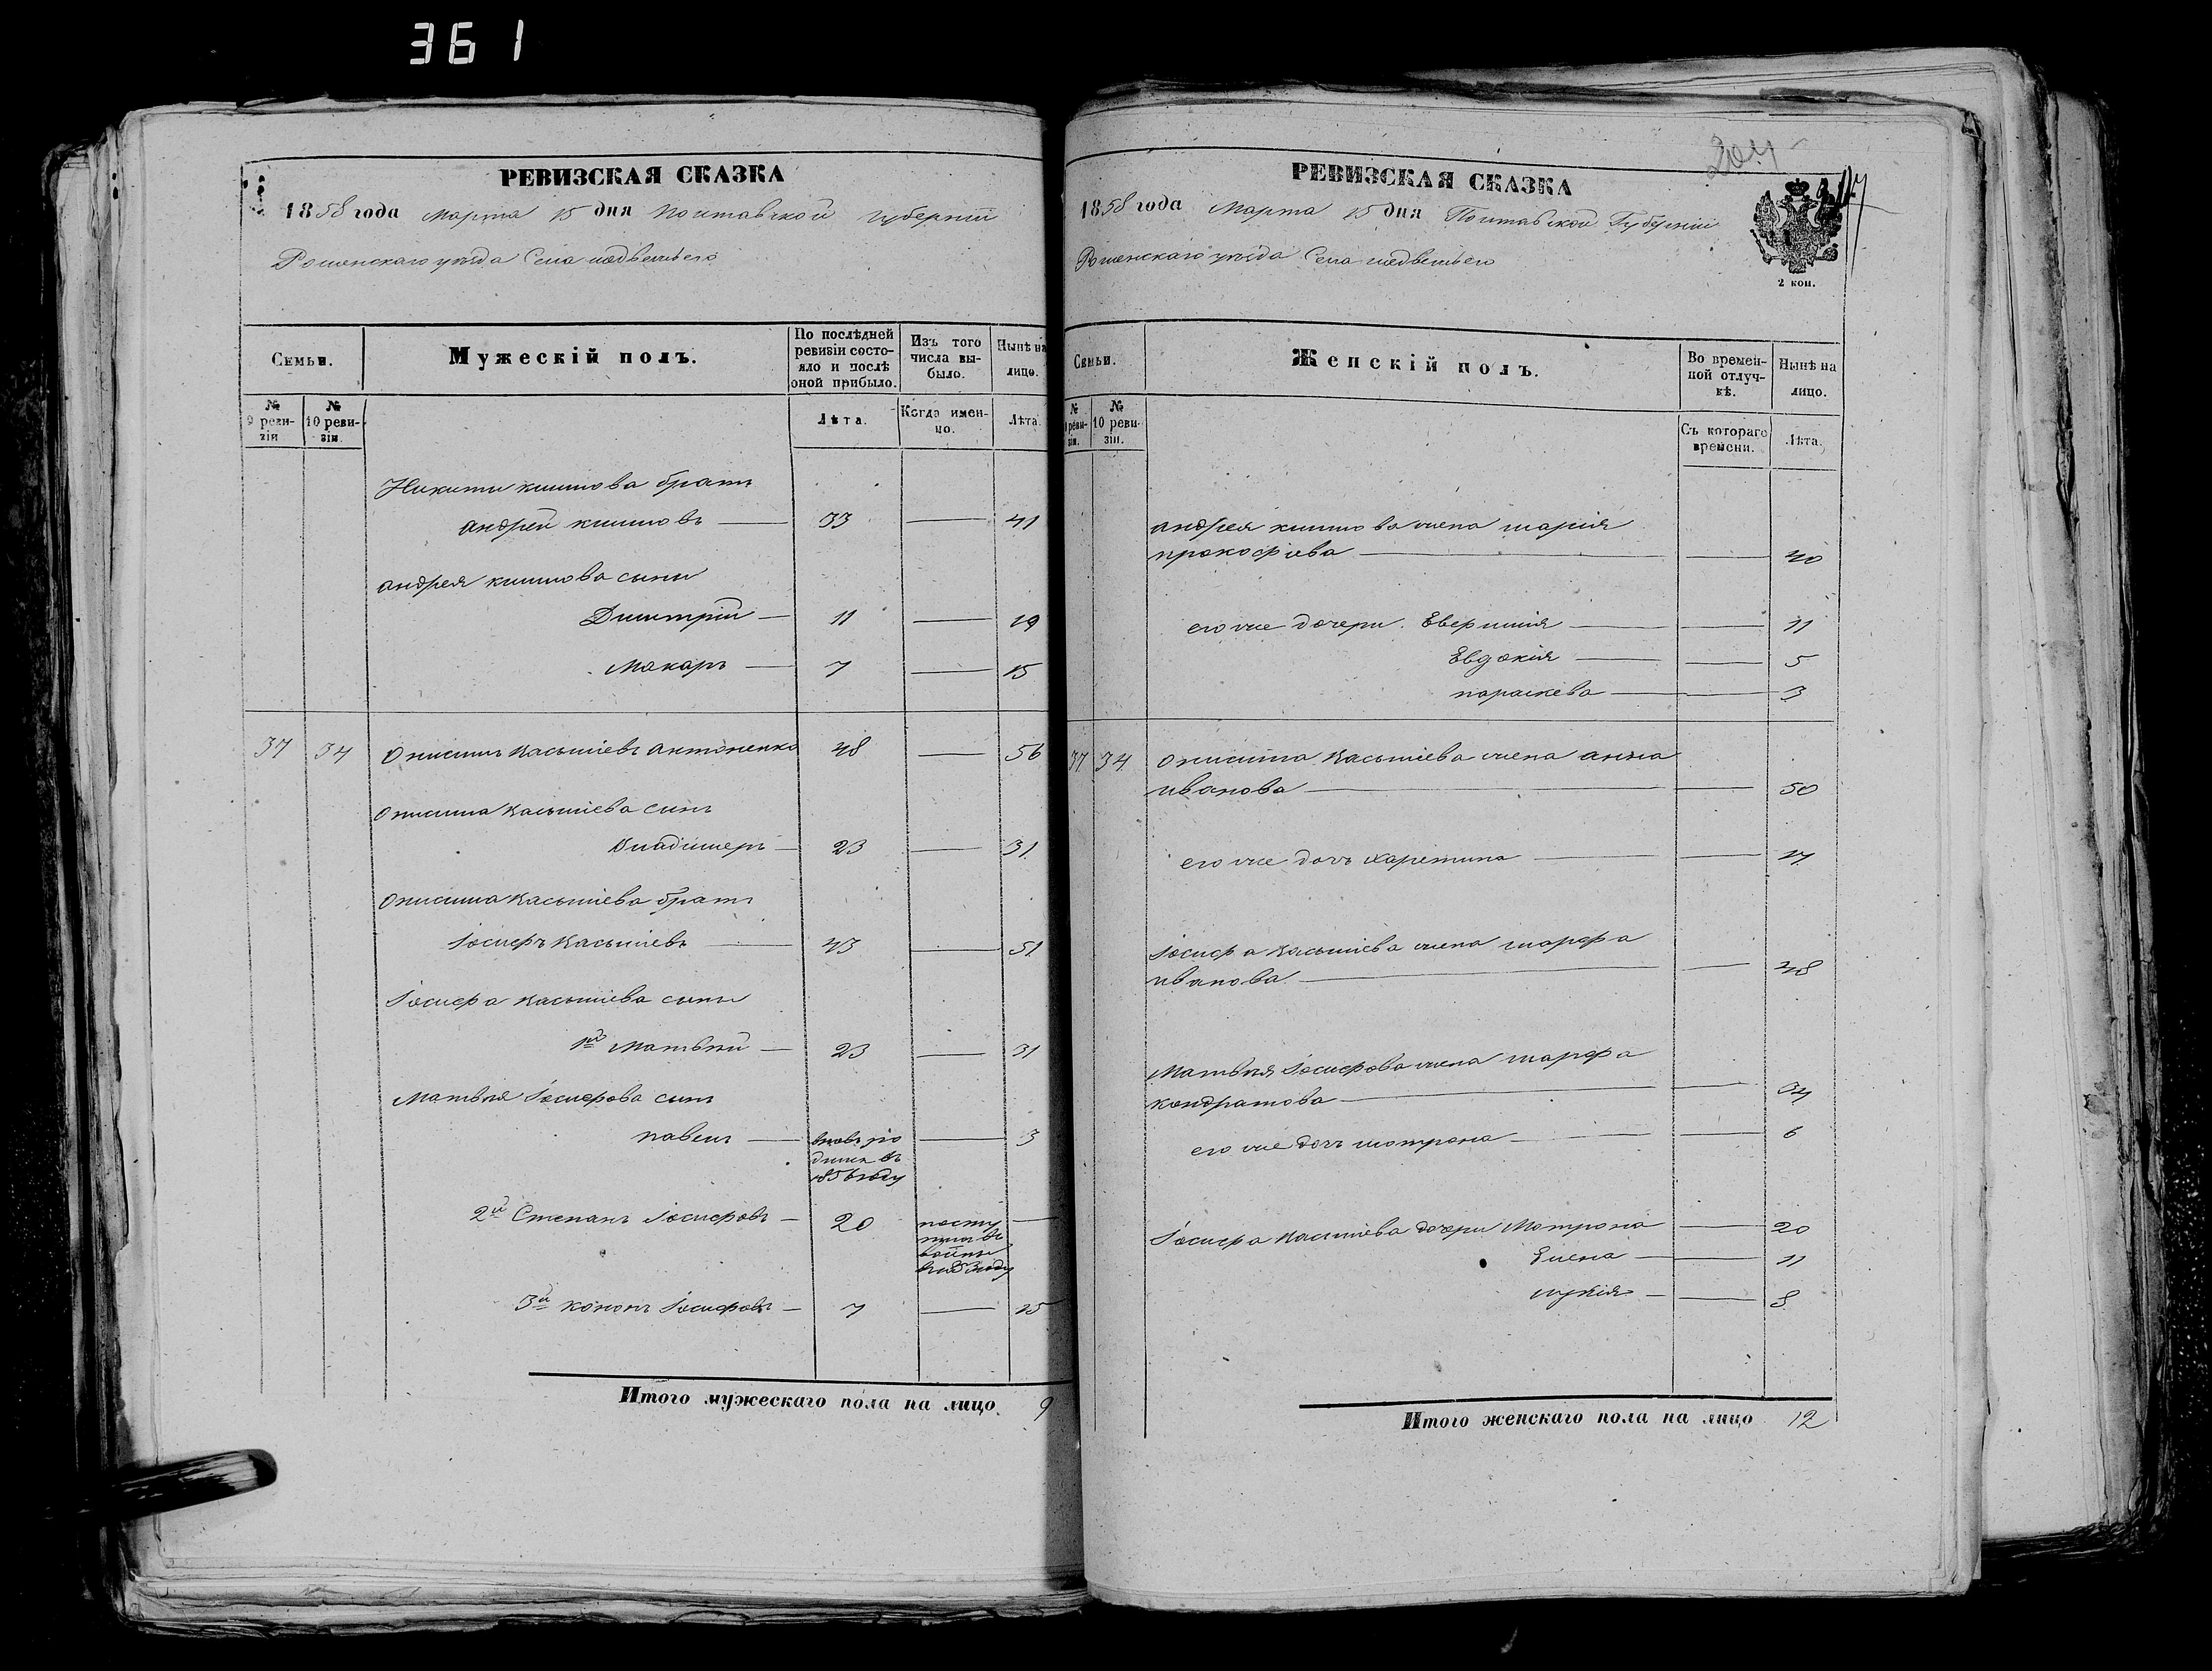 361
РЕВИЗСКАЯ СКАЗКА
1858 года Марта 15 дня Полтавской губерніи
Роменскаго уѣзда Села медвежьего
Семьи.
Мужескій полъ.
По послѣдней ревизіи состояло и послѣ оной прибыло.
Изъ того числа выбыло.
Нынѣ на лицо.
№ 9 ревизіи
№ 10 ревизіи.
Лѣта.
Когда именно.
Лѣта.
Никиты климова братъ
андрей климовъ — 33 — 41
андрея климова сыны
Димитрій — 11 — 19
Макаръ — 7 — 15
37 34 Онисимъ Касьяніевъ антоненко 48 — 56
Онисима Касьяніева сынъ
Владимеръ — 23 — 31
Онисима Касьяніева братъ
Іосифъ Касьяніевъ — 43 — 51
Іосифа Касьяніева сыны
1й Матвѣй — 23 — 31
Матвѣя Іосифова сынъ
павелъ — вновь ро — 3
дился въ
1855 году
2й Степанъ Іосифовъ — 20 посту —
пилъ въ
войны
3й кононъ Іосифовъ — 7 — 15
Итого мужескаго пола на лицо. 9
204
РЕВИЗСКАЯ СКАЗКА
1858 года Марта 15 дня Полтавской Губерніи
Роменскаго уѣзда Села медвежьего
2 коп.
Семьи.
Женскій полъ.
Во временной отлучкѣ.
Нынѣ на лицо.
№ 9 ревизіи.
№ 10 ревизіи.
Съ котораго времени.
Лѣта.
андрея климова жена марія
прокофіева — — 40
его же дочери. Евфимія — — 11
Евдокія — — 5
параскева — — 3
37 34 Онисима Касьяніева жена анна
иванова — — 50
его же дочь харитина — — 17
Іосифа Касьяніева жена марфа
иванова. — — 48
Матвѣя Іосифова жена марфа
кондратова — — 34
его же дочь мотрона — — 6
Іосифа Касьяніева дочери Мотрона — 20
Елена — — 11
лукія — — 8
Итого женскаго пола на лицо 12